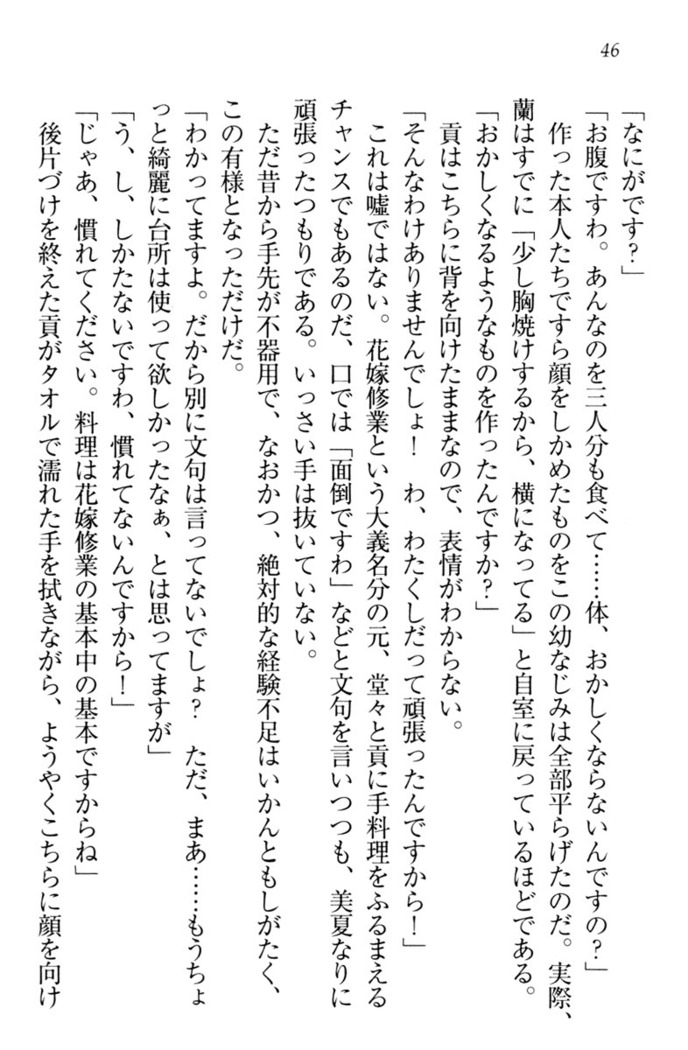 46
「なにがです？」
「お腹ですわ。あんなのを三人分も食べて……体、おかしくならないんですの？」
作った本人たちですら顔をしかめたものをこの幼なじみは全部平らげたのだ。実際、
蘭はすでに「少し胸焼けするから、横になってる」と自室に戻っているほどである。
「おかしくなるようなものを作ったんですか？」
貢はこちらに背を向けたままなので、表情がわからない。
「そんなわけありませんでしょ！　わ、わたくしだって頑張ったんですから！」
これは嘘ではない。花嫁修業という大義名分の元、堂々と貢に手料理をふるまえる
チャンスでもあるのだ、口では「面倒ですわ」などと文句を言いつつも、美夏なりに
頑張ったつもりである。いっさい手は抜いていない。
ただ昔から手先が不器用で、なおかつ、絶対的な経験不足はいかんともしがたく、
この有様となっただけだ。
「わかってますよ。だから別に文句は言ってないでしょ？　ただ、まあ……もうちょ
っと綺麗に台所は使って欲しかったなぁ、とは思ってますが」
「う、し、しかたないですわ、慣れてないんですから！」
「じゃあ、慣れてください。料理は花嫁修業の基本中の基本ですからね」
後片づけを終えた貢がタオルで濡れた手を拭きながら、ようやくこちらに顔を向け